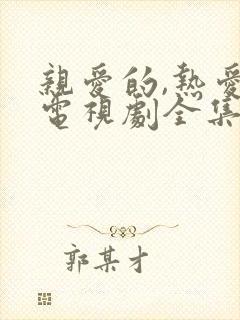 親愛的,熱愛
電視劇全集
郭某才